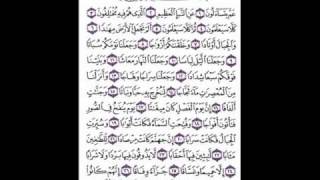 عَمَّ يَتَسَاءَلُونَ ١ عَنِ النَّبَإِ الْعَظِيمِ ٢ الَّذِي هُمْ فِيهِ مُخْتَلِفُونَ ٣
كَلَّا سَيَعْلَمُونَ ٤ ثُمَّ كَلَّا سَيَعْلَمُونَ ٥ أَلَمْ نَجْعَلِ الْأَرْضَ مِهَٰدًا ٦
وَالْجِبَالَ أَوْتَادًا ٧ وَخَلَقْنَٰكُمْ أَزْوَٰجًا ٨ وَجَعَلْنَا نَوْمَكُمْ سُبَاتًا ٩
وَجَعَلْنَا الَّيْلَ لِبَاسًا ١٠ وَجَعَلْنَا النَّهَارَ مَعَاشًا ١١ وَبَنَيْنَا
فَوْقَكُمْ سَبْعًا شِدَادًا ١٢ وَجَعَلْنَا سِرَاجًا وَهَّاجًا ١٣ وَأَنزَلْنَا
مِنَ الْمُعْصِرَٰتِ مَاءً ثَجَّاجًا ١٤ لِّنُخْرِجَ بِهِ حَبًّا وَنَبَاتًا ١٥ وَجَنَّٰتٍ
أَلْفَافًا ١٦ إِنَّ يَوْمَ الْفَصْلِ كَانَ مِيقَٰتًا ١٧ يَوْمَ يُنفَخُ فِي الصُّورِ
فَتَأْتُونَ أَفْوَاجًا ١٨ وَفُتِحَتِ السَّمَاءُ فَكَانَتْ أَبْوَٰبًا ١٩ وَسُيِّرَتِ
الْجِبَالُ فَكَانَتْ سَرَابًا ٢٠ إِنَّ جَهَنَّمَ كَانَتْ مِرْصَادًا ٢١ لِّلطَّٰغِينَ
مَـَٔابًا ٢٢ لَّٰبِثِينَ فِيهَا أَحْقَابًا ٢٣ لَّا يَذُوقُونَ فِيهَا بَرْدًا وَلَا شَرَابًا
٢٤ إِلَّا حَمِيمًا وَغَسَّاقًا ٢٥ جَزَاءً وِفَاقًا ٢٦ إِنَّهُمْ كَانُوا